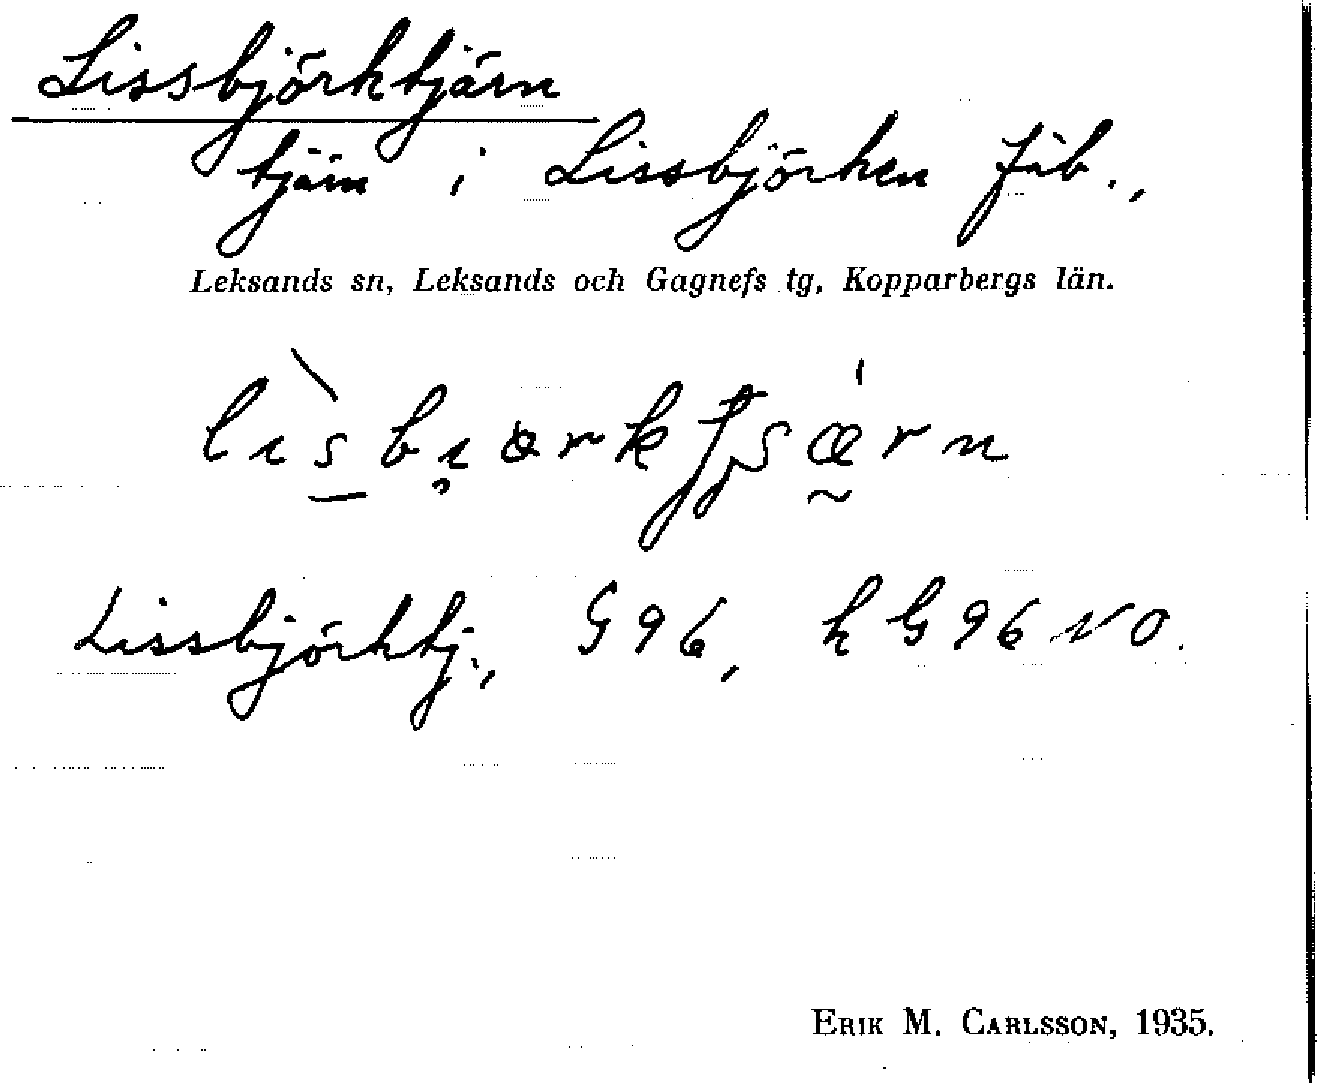 Lissbjörktjärn
tjärn i Lissbjörken fäb.,
Leksands sn, Leksands och Gagnefs tg, Kopparbergs län.
Lissbjörktj., G 96, k G 96 NO.
ERIK M. CARLSSON, 1935.